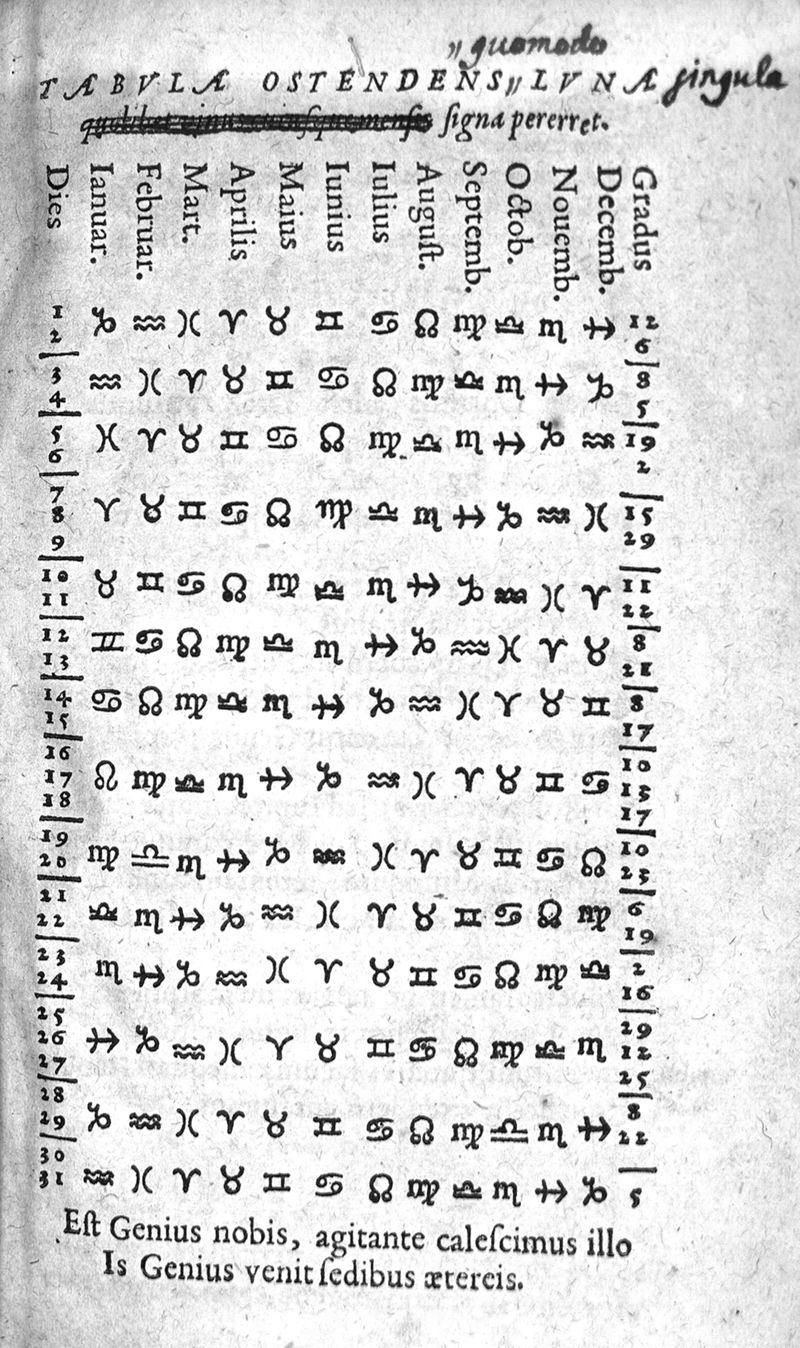 „ quomodo
TABVLA OSTENDENS„ LVNA singula
ſigna pererret.
Dies Ianuar. Februar. Mart. Aprilis Maius Iunius Iulius Auguſt. Septemb. Octob. Nouemb. Decemb. Gradus
1 ♑ ♒ ♓ ♈ ♉ ♊ ♋ ♌ ♍ ♎ ♏ ♐ 12
2 6
3 ♒ ♓ ♈ ♉ ♊ ♋ ♌ ♍ ♎ ♏ ♐ ♑ 8
4 5
5 ♓ ♈ ♉ ♊ ♋ ♌ ♍ ♎ ♏ ♐ ♑ ♒ 19
6 2
7
8 ♈ ♉ ♊ ♋ ♌ ♍ ♎ ♏ ♐ ♑ ♒ ♓ 15
9 29
10 ♉ ♊ ♋ ♌ ♍ ♎ ♏ ♐ ♑ ♒ ♓ ♈ 11
11 22
12 ♊ ♋ ♌ ♍ ♎ ♏ ♐ ♑ ♒ ♓ ♈ ♉ 8
13 21
14 ♋ ♌ ♍ ♎ ♏ ♐ ♑ ♒ ♓ ♈ ♉ ♊ 8
15 17
16 10
17 ♌ ♍ ♎ ♏ ♐ ♑ ♒ ♓ ♈ ♉ ♊ ♋ 13
18 17
19 10
20 ♍ ♎ ♏ ♐ ♑ ♒ ♓ ♈ ♉ ♊ ♋ ♌ 23
21 ♎ ♏ ♐ ♑ ♒ ♓ ♈ ♉ ♊ ♋ ♌ ♍ 6
22 19
23 ♏ ♐ ♑ ♒ ♓ ♈ ♉ ♊ ♋ ♌ ♍ ♎ 2
24 16
25 29
26 ♐ ♑ ♒ ♓ ♈ ♉ ♊ ♋ ♌ ♍ ♎ ♏ 12
27 25
28 8
29 ♑ ♒ ♓ ♈ ♉ ♊ ♋ ♌ ♍ ♎ ♏ ♐ 22
30
31 ♒ ♓ ♈ ♉ ♊ ♋ ♌ ♍ ♎ ♏ ♐ ♑ 5
Eſt Genius nobis, agitante caleſcimus illo
Is Genius venit ſedibus ætereis.